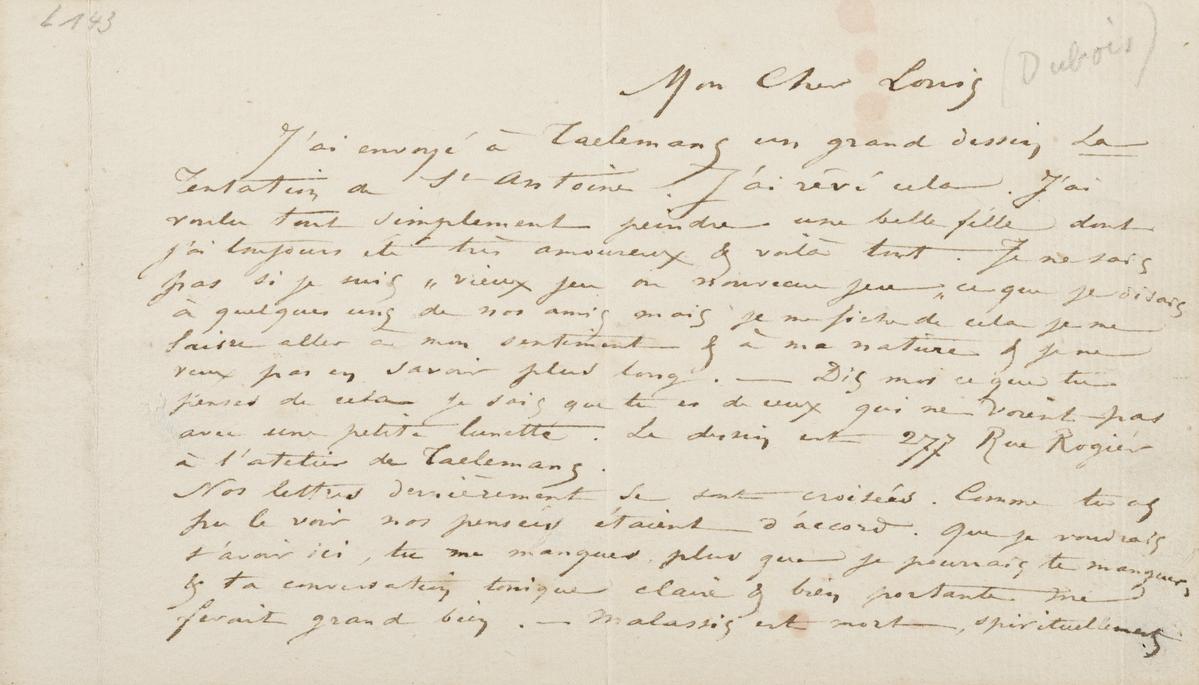 L 143
(Dubois)
Mon Cher Louis
J'ai envoyé à Taelemans un grand dessin, La
Tentation de St Antoine. J'ai rêvé cela. J'ai
voulu tout simplement peindre une belle fille dont
j'ai toujours été très amoureux & voilà tout. Je ne sais
pas si je suis „ vieux jeu ou nouveau jeu „ ce que je disais
à quelques uns de nos amis mais je me fiche de cela je me
laisse aller à mon sentiment & à ma nature & je ne
veux pas en savoir plus long. — Dis moi ce que tu
penses de cela je sais que tu es de ceux qui ne voient pas
avec une petite lunette. Le dessin est 277 Rue Rogier
à l'atelier de Taelemans.
Nos lettres dernièrement se sont croisées. Comme tu as
pu le voir nos pensées étaient d'accord. Que je voudrais
t'avoir ici, tu me manques plus que je pourrais te manquer,
& ta conversation tonique claire & bien portante me
ferait grand bien. — Malassis est mort, spirituellement